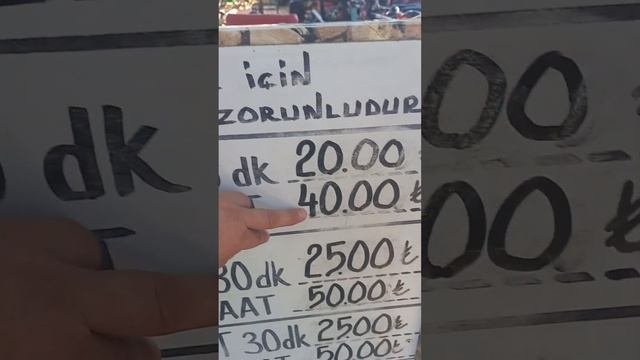 için
ZORUNLUDUR
dk 20.00
40.00 ₺
30 dk 25.00 ₺
AAT 50.00 ₺
T 30dk 25.00 ₺
50.00 ₺